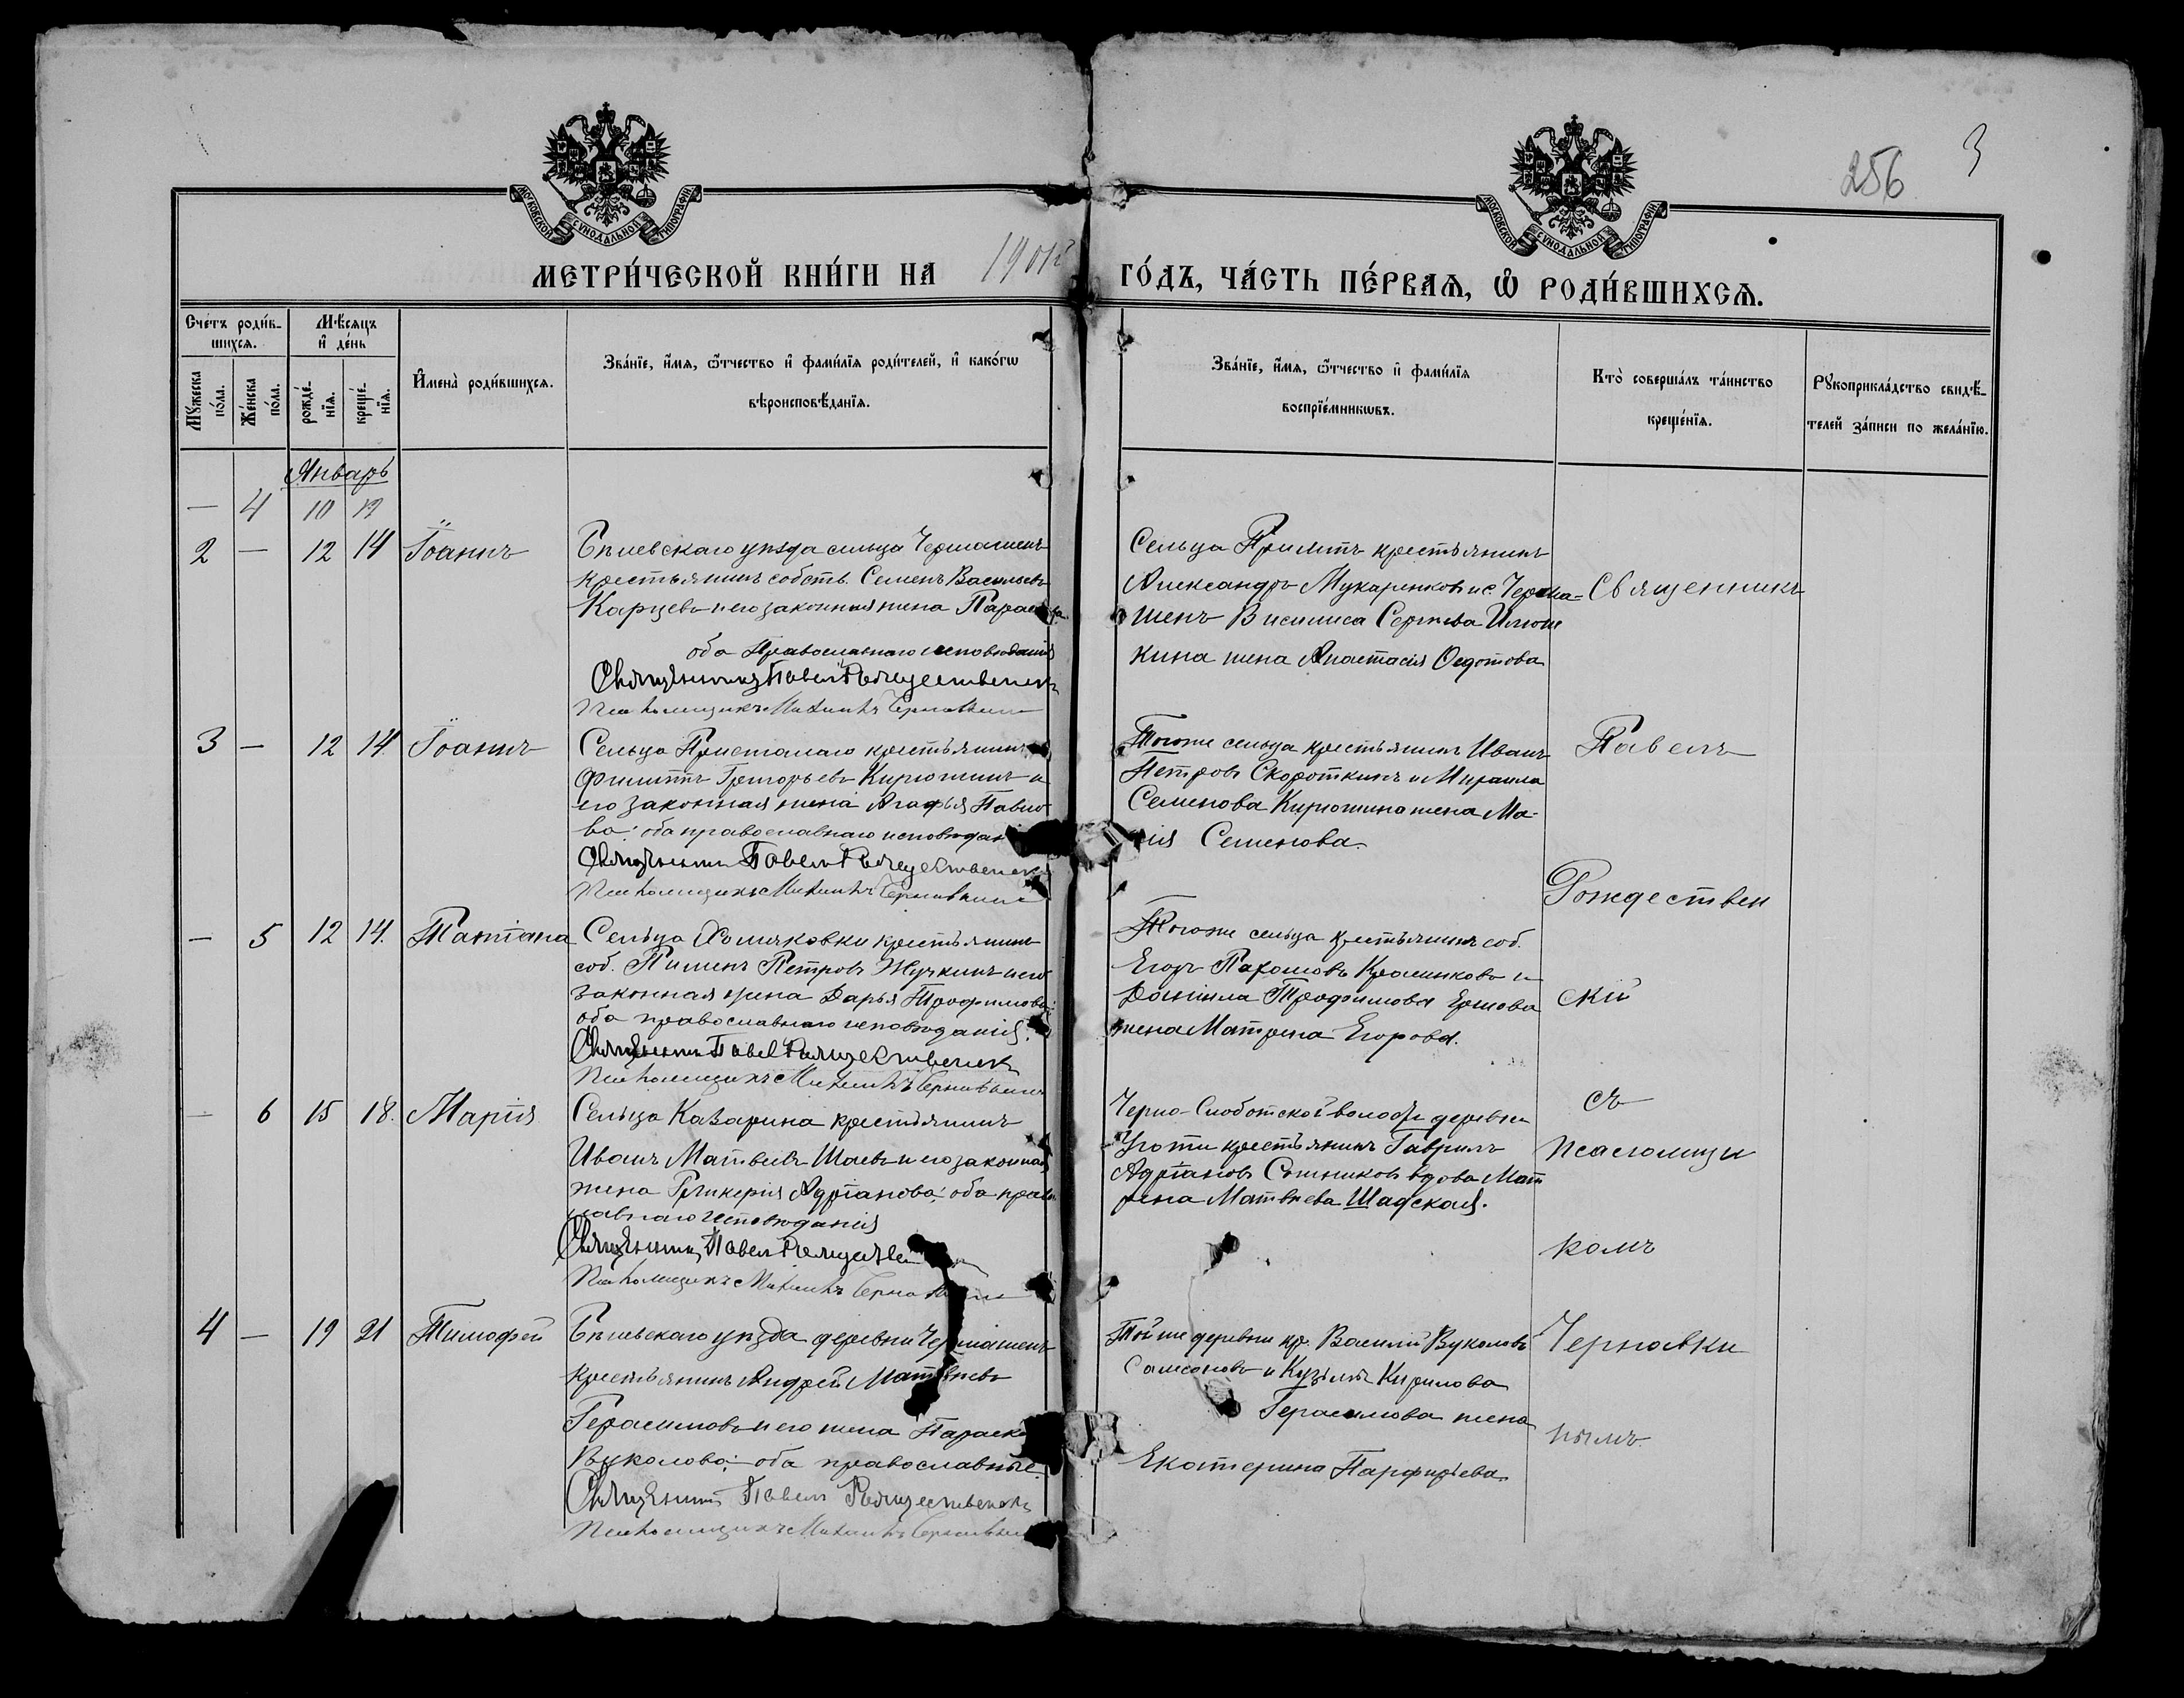 256
3
МОСКОВСКОЙ СѴНОДАЛЬНОЙ ТИПОГРАФІИ
МОСКОВСКОЙ СѴНОДАЛЬНОЙ ТИПОГРАФІИ
МЕТРИ́ЧЕСКОЙ КНИ́ГИ НА 1901й ГО́ДЪ, ЧА́СТЬ ПЕ́РВАѦ, Ѡ҆ РОДИ́ВШИХСѦ.
Сче́тъ роди́в-
шихсѧ.
Мѣ́сяцъ
и҆ де́нь
Мꙋ́жеска
по́ла.
Же́нска
по́ла.
рожде́-
нїѧ.
креще́-
нїѧ.
И҆мена̀ роди́вшихсѧ.
Зва́нїе, и҆́мѧ, ѻ҆́тчество и҆ фами́лїѧ роди́телей, и҆ како́гѡ
вѣроисповѣ́данїѧ.
Зва́нїе, и҆́мѧ, ѻ҆́тчество и҆ фами́лїѧ
воспрїе́мникѡвъ.
Кто̀ соверша́лъ та́инство
креще́нїѧ.
Рꙋкоприкла́дство свидѣ́-
телей за́писи по жела́нїю.
Январь
— 4 10 12
2 — 12 14 Іоаннъ
Бѣлевскаго уѣзда сельца Чермошенъ
крестьянинъ собств. Семенъ Васильевъ
Карцевъ и его законная жена
оба Православнаго исповѣданія
Священникъ Павелъ Рождественск
Псаломщикъ
Сельца крестьянинъ
Александръ и с. Черма-
шенъ Сергѣева
кина жена Анастасія Ѳедотова
Священникъ
3 — 12 14. Іоаннъ
Сельца крестьянинъ
Филиппъ Григорьевъ Кирюшинъ и
его законная жена Агафья Павло
ва: оба православнаго исповѣдан
Священникъ Павелъ Рождественск
Псаломщикъ
Тогоже сельца крестьянинъ Иванъ
Петровъ Скороткинъ и Михаила
Семенова Кирюшина жена Ма-
рія Семенова.
Павелъ
Рождествен
— 5 12 14. Татіана
Сельца Хомяковки крестьянинъ
соб. Пименъ Петровъ Жучкинъ и его
законная жена Дарья Трофимова:
оба православнаго исповѣданія.
Священникъ Павел Рождественск
Псаломщикъ
Тогоже сельца крестьянинъ соб.
Егоръ Пахомовъ и
Даніила Трофимова Ершова
жена Матрена Егорова.
скій
— 6 15 18. Марія
Сельца Казарина крестьянинъ
Иванъ Матвеевъ Шаевъ и его законная
жена Гликерія Адріанова: оба право
славнаго исповѣданія
Священникъ Павел
Псаломщикъ
Черно-Слоботской волости деревни
крестьянинъ Гаврилъ
Адріановъ Сотниковъ вдова Мат
рена Матвѣева Шадская.
съ
псаломщи
комъ
4 — 19 21 Тимофей
Бѣлевскаго уѣзда деревни Чермошенъ
крестьянинъ Андрей Матвѣевъ
Герасимовъ и его жена Параске
Вуколова: оба православные.
Священникъ Павелъ Рождественскі
Псаломщикъ
Той же деревни кр. Василій Вуколовъ
Самсоновъ и Кузьмы Кирилова
Герасимова жена
Екатерина Парфирьева
Чернявки
нымъ.